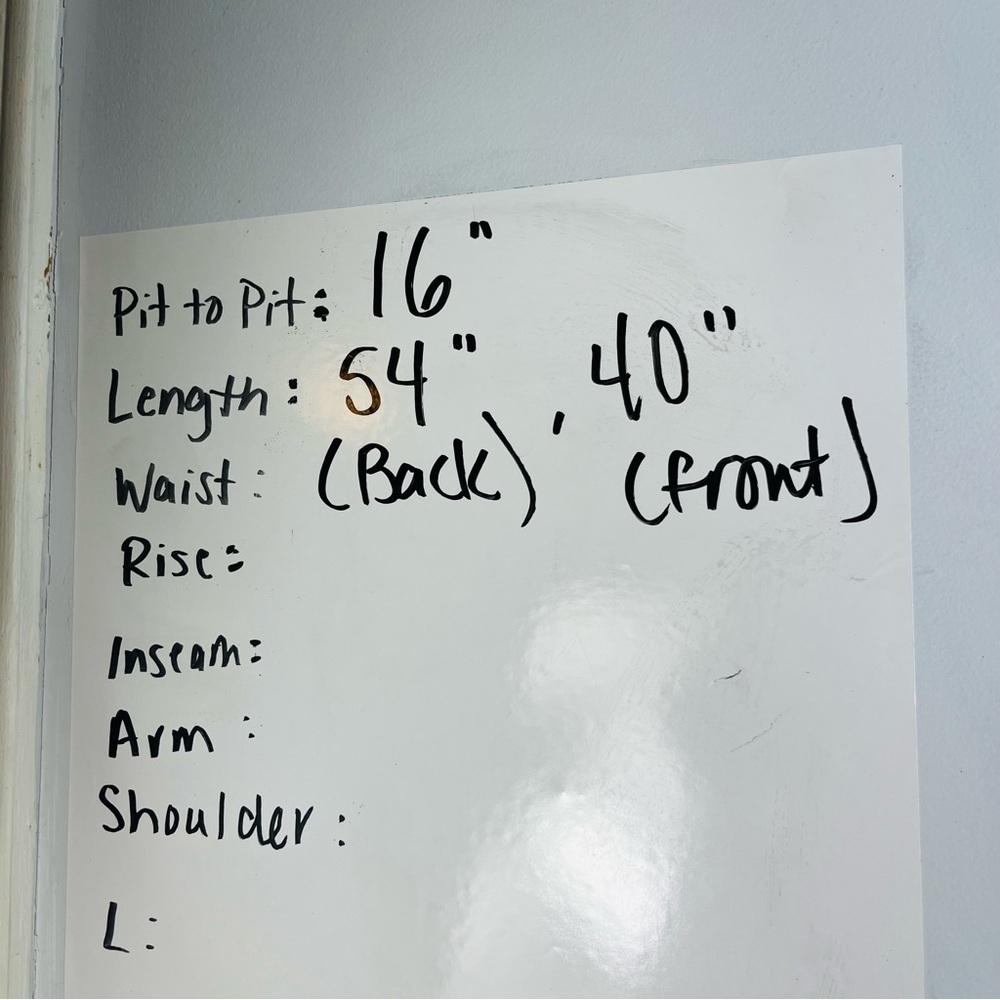 Pit to Pit: 16"
Length: 54", 40"
Waist: (Back) (front)
Rise:
Inseam:
Arm:
Shoulder:
L: